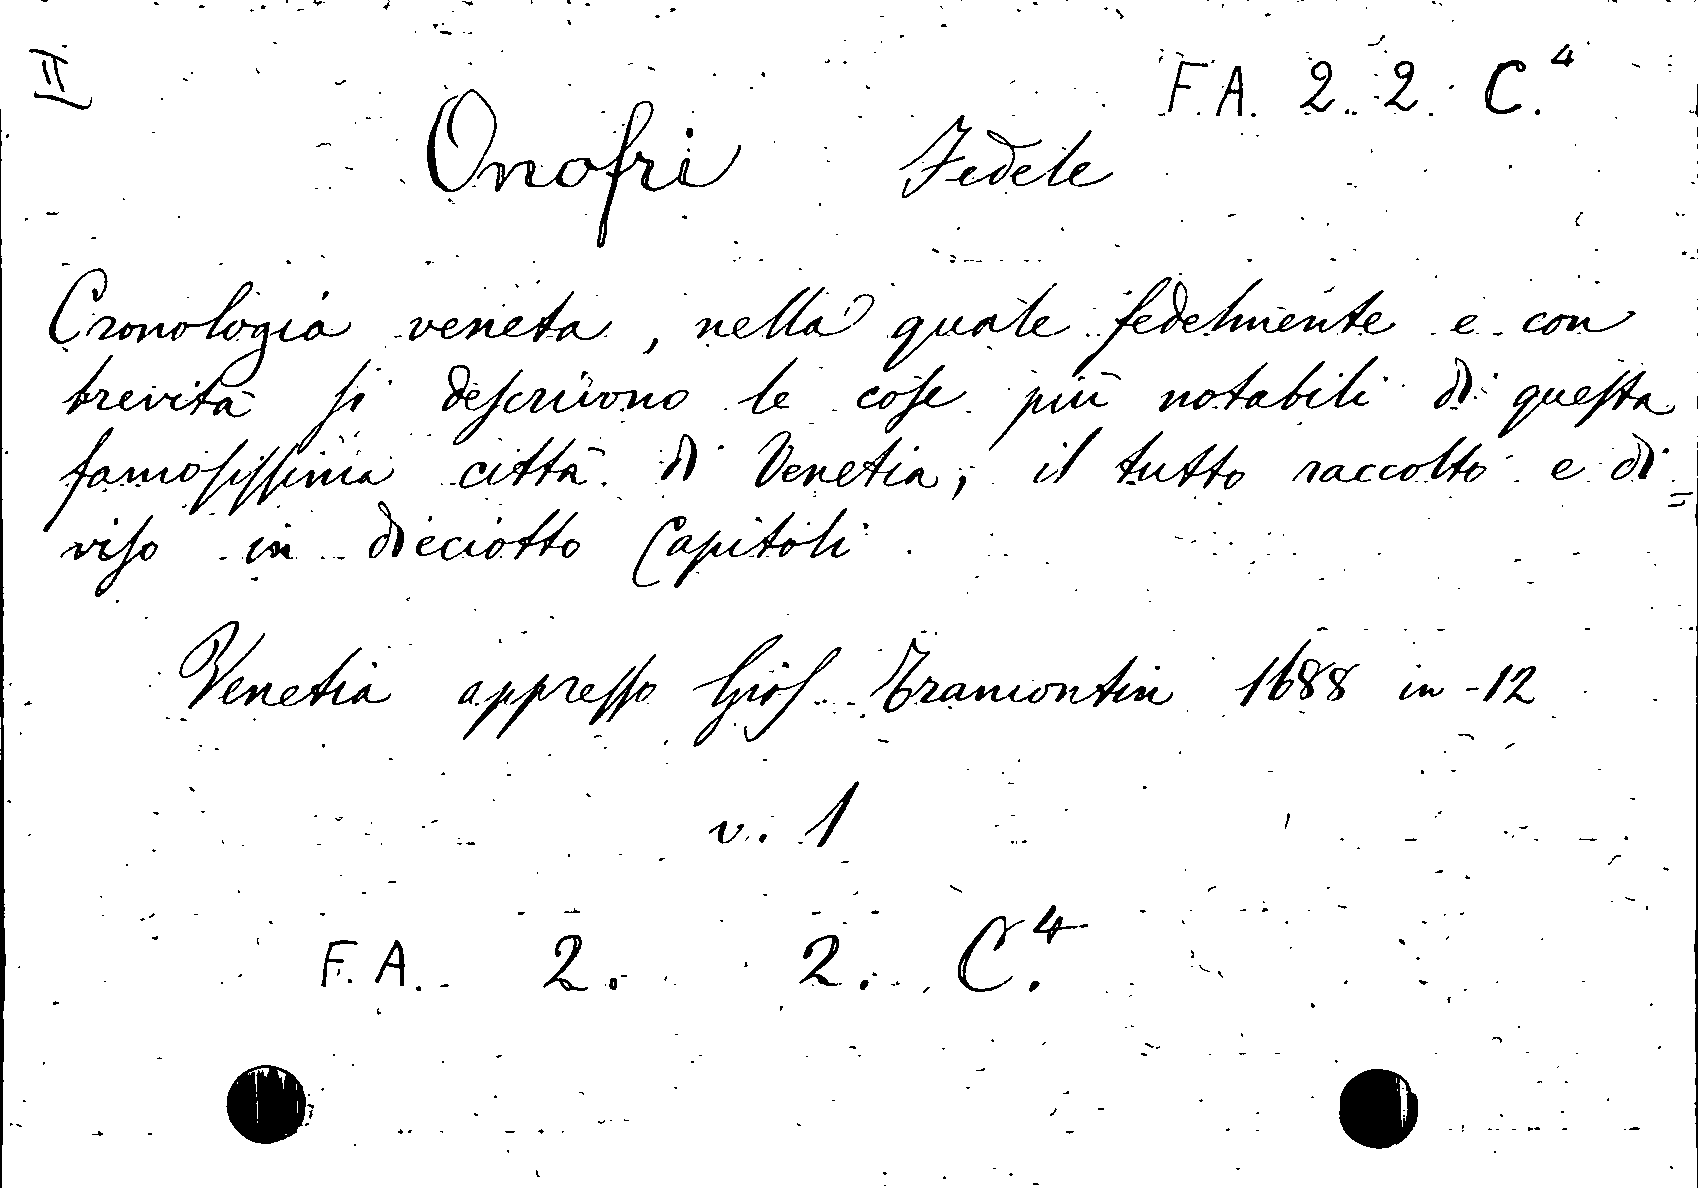 II
F.A. 2. 2. C.⁴
Onofri Fedele
Cronologia veneta, nella quale fedelmente e con
brevità si descrivono le cose più notabili di questa
famosissima città di Venetia, il tutto raccolto e di=
viso in dieciotto Capitoli
Venetia appresso Gios. Tramontin 1688 in-12
v. 1
F.A. 2. 2. C.⁴